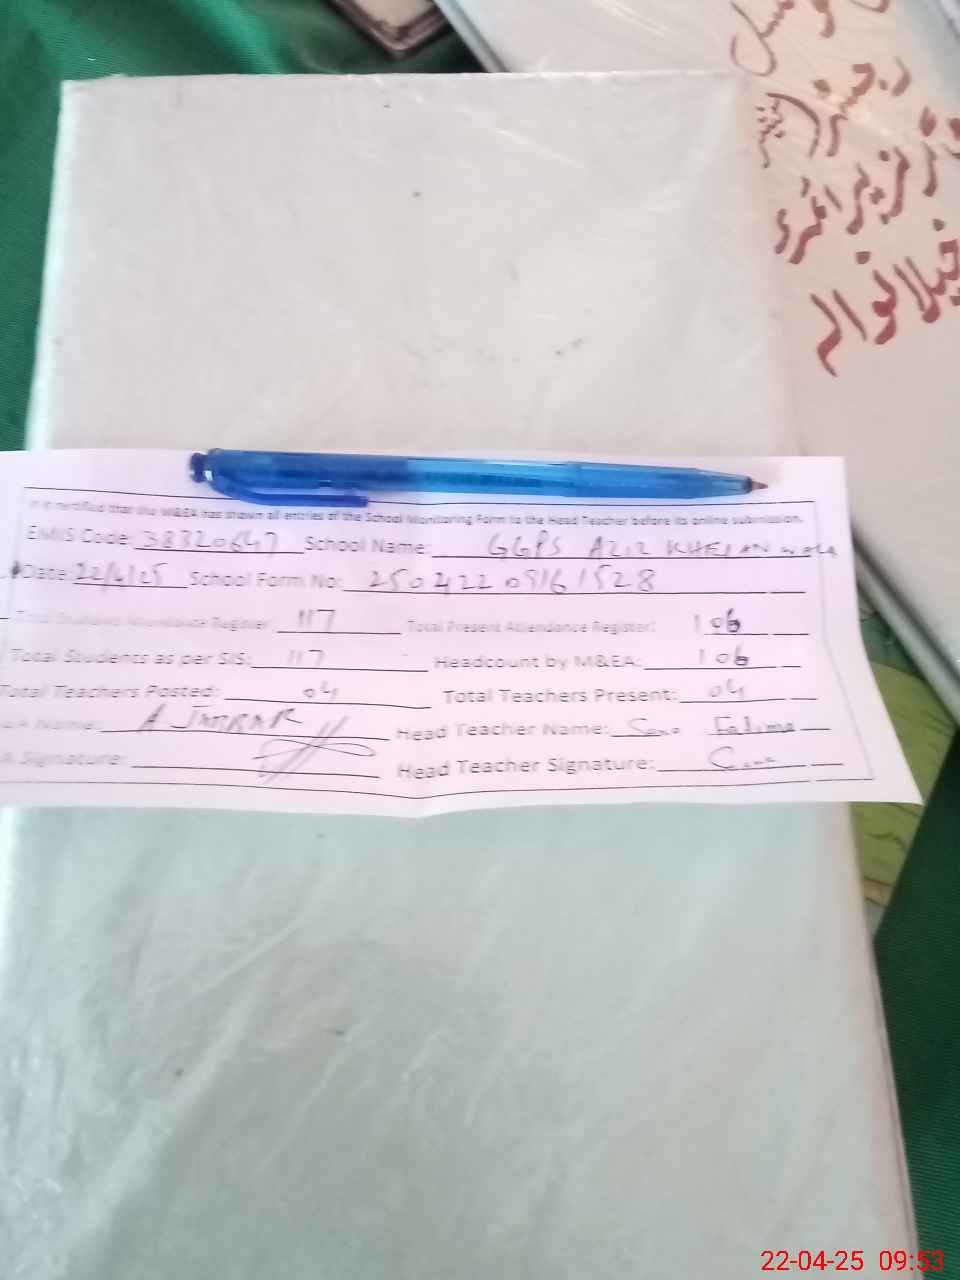 رجسٹر
گرلز پرائمری
خیلانوالہ
It is certified that the M&EA has shown all entries of the School Monitoring Form to the Head Teacher before its online submission.
EMIS Code: 38320647 School Name: GGPS AZIZ KHELAN WALA
Date: 22/4/25 School Form No: 25042209161528
Total Students Attendance Register: 117 Total Present Attendance Register: 106
Total Students as per SIS: 117 Headcount by M&EA: 106
Total Teachers Posted: 04 Total Teachers Present: 04
EA Name: Head Teacher Name: Fatima
A Signature: Head Teacher Signature:
22-04-25 09:53